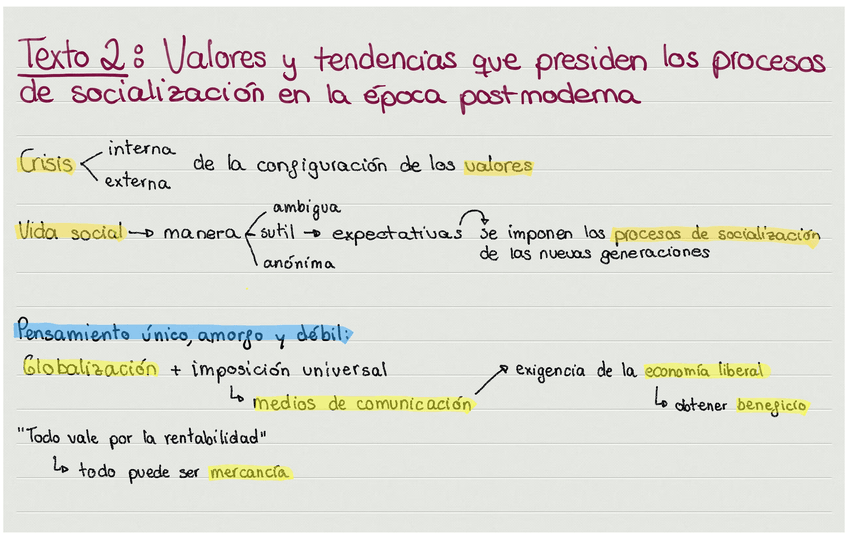 Texto 2: Valores y tendencias que presiden los procesos
de socialización en la época postmoderna
Crisis interna externa de la configuración de los valores
Vida social → manera ambigua sutil anónima → expectativas se imponen los procesos de socialización
de las nuevas generaciones
Pensamiento único, amorfo y débil:
Globalización + imposición universal
↳ medios de comunicación → exigencia de la economía liberal
↳ obtener beneficio
"Todo vale por la rentabilidad"
↳ todo puede ser mercancía